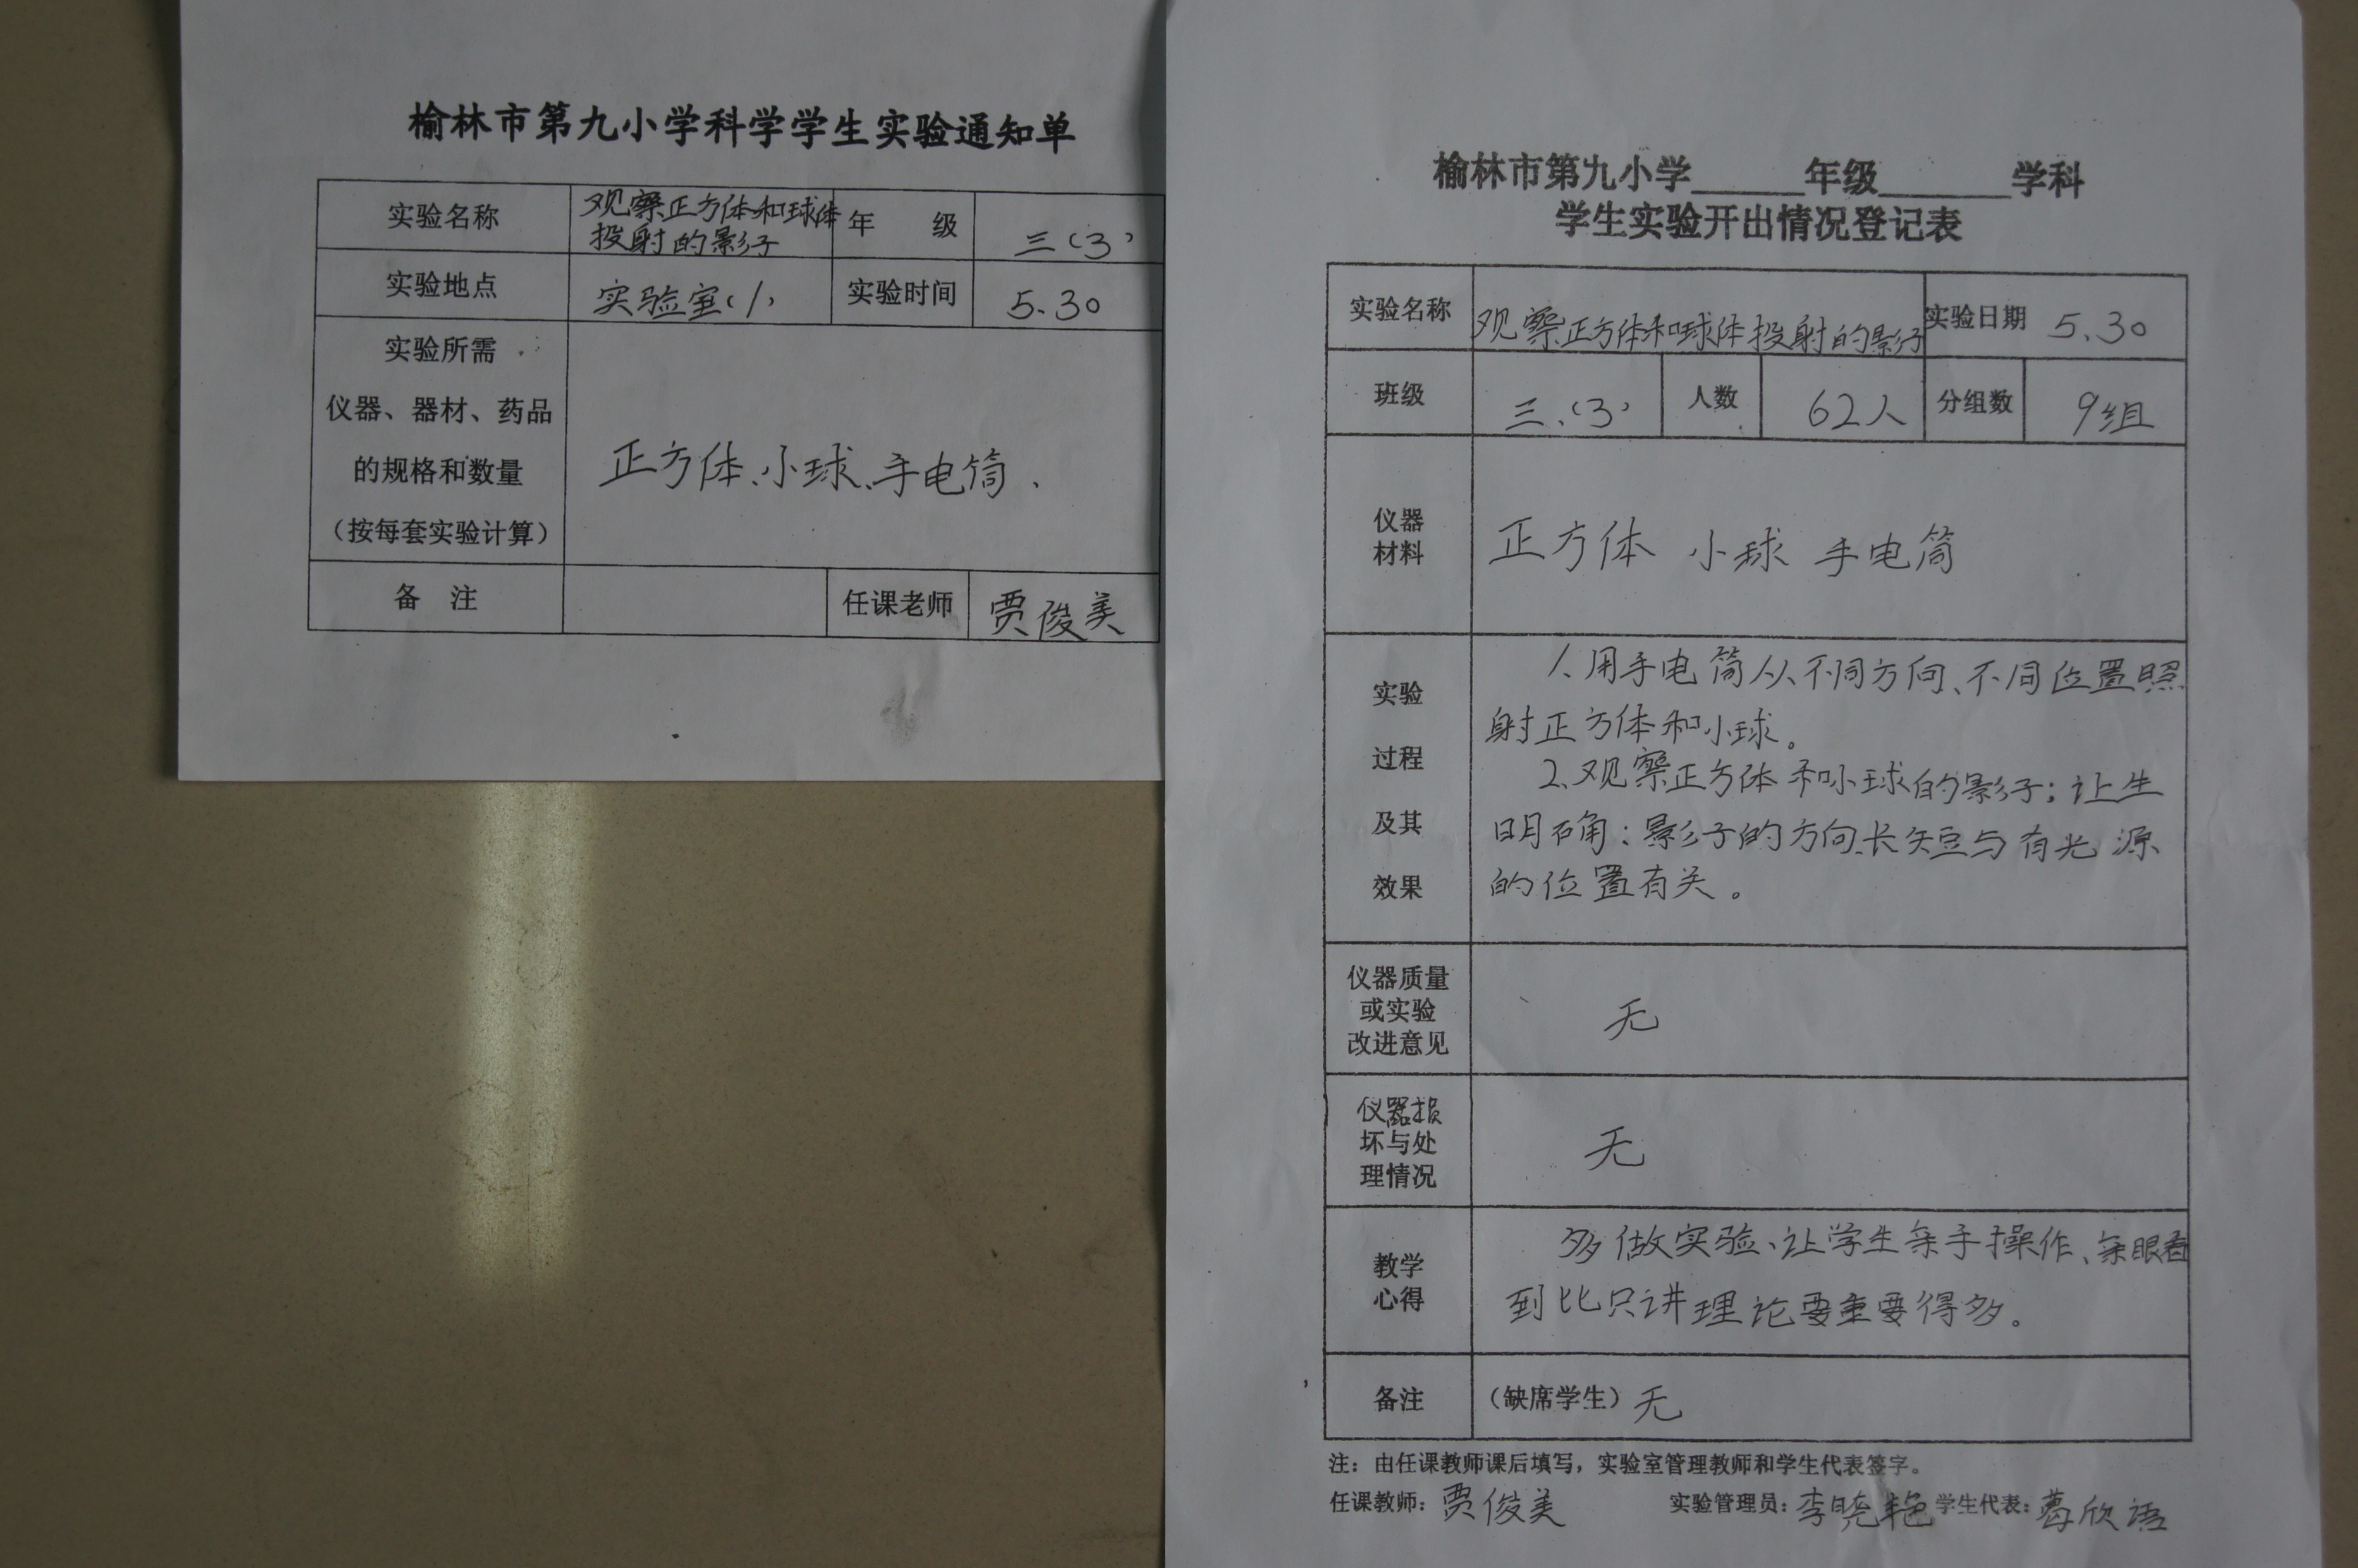 榆林市第九小学科学学生实验通知单
实验名称 观察正方体和球体投射的影子 年 级 三(3)
实验地点 实验室(1) 实验时间 5.30
实验所需
仪器、器材、药品
的规格和数量
(按每套实验计算)
正方体、小球、手电筒、
备 注 任课老师 贾俊美
榆林市第九小学______年级_______学科
学生实验开出情况登记表
实验名称 观察正方体和球体投射的影子 实验日期 5.30
班级 三.(3) 人数 62人 分组数 9组
仪器
材料
正方体 小球 手电筒
实验
过程
及其
效果
1.用手电筒从不同方向、不同位置照
射正方体和小球。
2.观察正方体和小球的影子;让生
明确:影子的方向、长短与有光源
的位置有关。
仪器质量
或实验
改进意见
无
仪器损
坏与处
理情况
无
教学
心得
多做实验、让学生亲手操作、亲眼看
到比只讲理论要重要得多。
备注 (缺席学生) 无
注:由任课教师课后填写,实验室管理教师和学生代表签字。
任课教师:贾俊美 实验管理员:李晓艳 学生代表:葛欣语